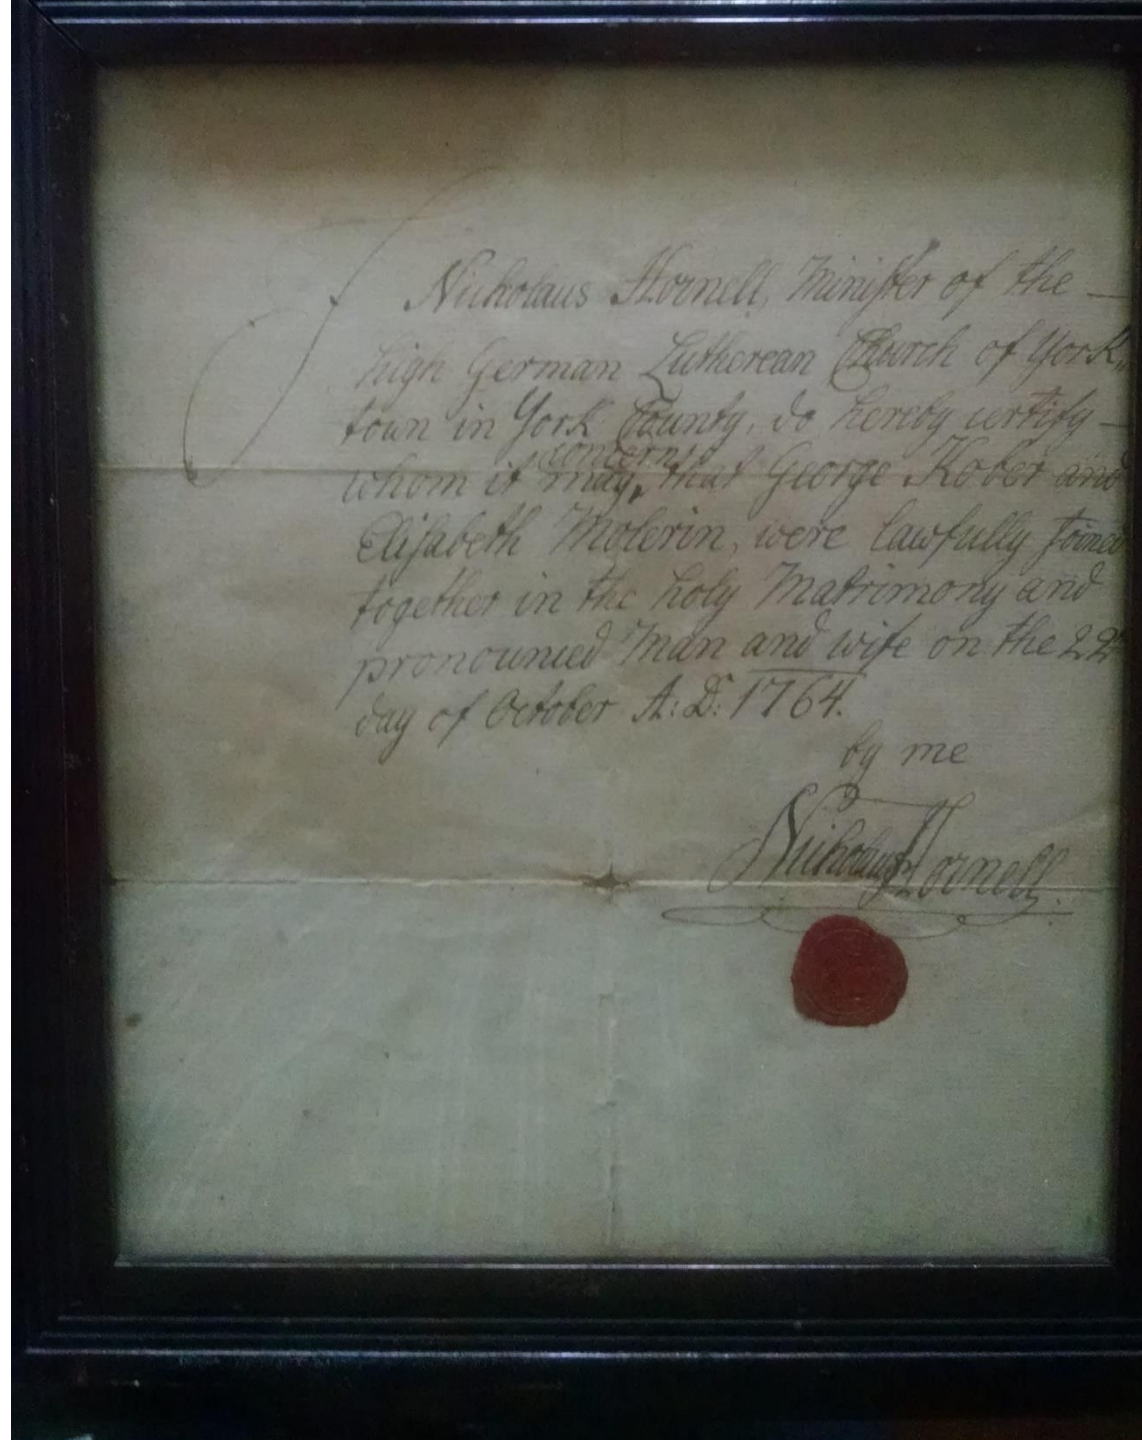 I Nicholaus Hornell, Minister of the —
high German Lutherean Church of York-
town in York County, do hereby certify —
concerns
whom it may, that George Kober and
Elisabeth Molerin, were lawfully joined
together in the holy Matrimony and
pronounced Man and wife on the 22
day of October A: D: 1764.
by me
Nicholaus Hornell.